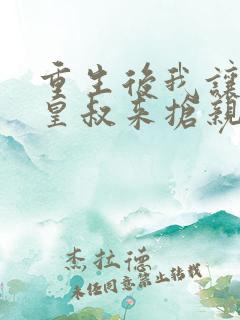 重生後我讓
皇叔来搶親
杰拉德
未经同意禁止转载